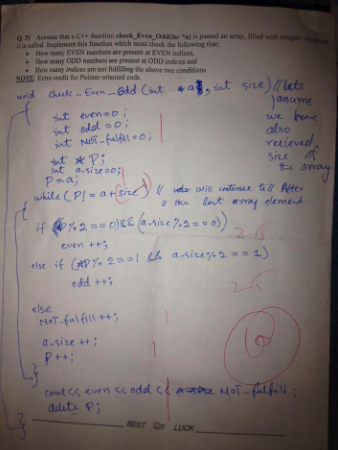 Q. 3) Assume that a C++ function check_Even_Odd(int *a) is passed an array, filled with integers whenever
it is called. Implement this function which must check the following that:
• How many EVEN numbers are present at EVEN indices,
• How many ODD numbers are present at ODD indices and
• How many indices are not fulfilling the above two conditions
NOTE: Extra credit for Pointer oriented code.
void check_Even_Odd (int *a, int size) // Lets
{ assume
int even=0; we have
int odd=0; also
int Not-fulfil=0; recieved
int *P; size of
int a-size=0; the array
P=a;
while (P!=a+size) // will continue till After
{ // the last array element
if (*P%2==0)&&(a-size%2==0))
even++;
else if (*P%2==1 && a-size%2==1)
odd++;
2.5
2.5
else
NOT-fulfill++;
a-size++;
P++;
}
cout<< even<<odd<< NOT-fulfill;
delete P;
}
BEST OF LUCK